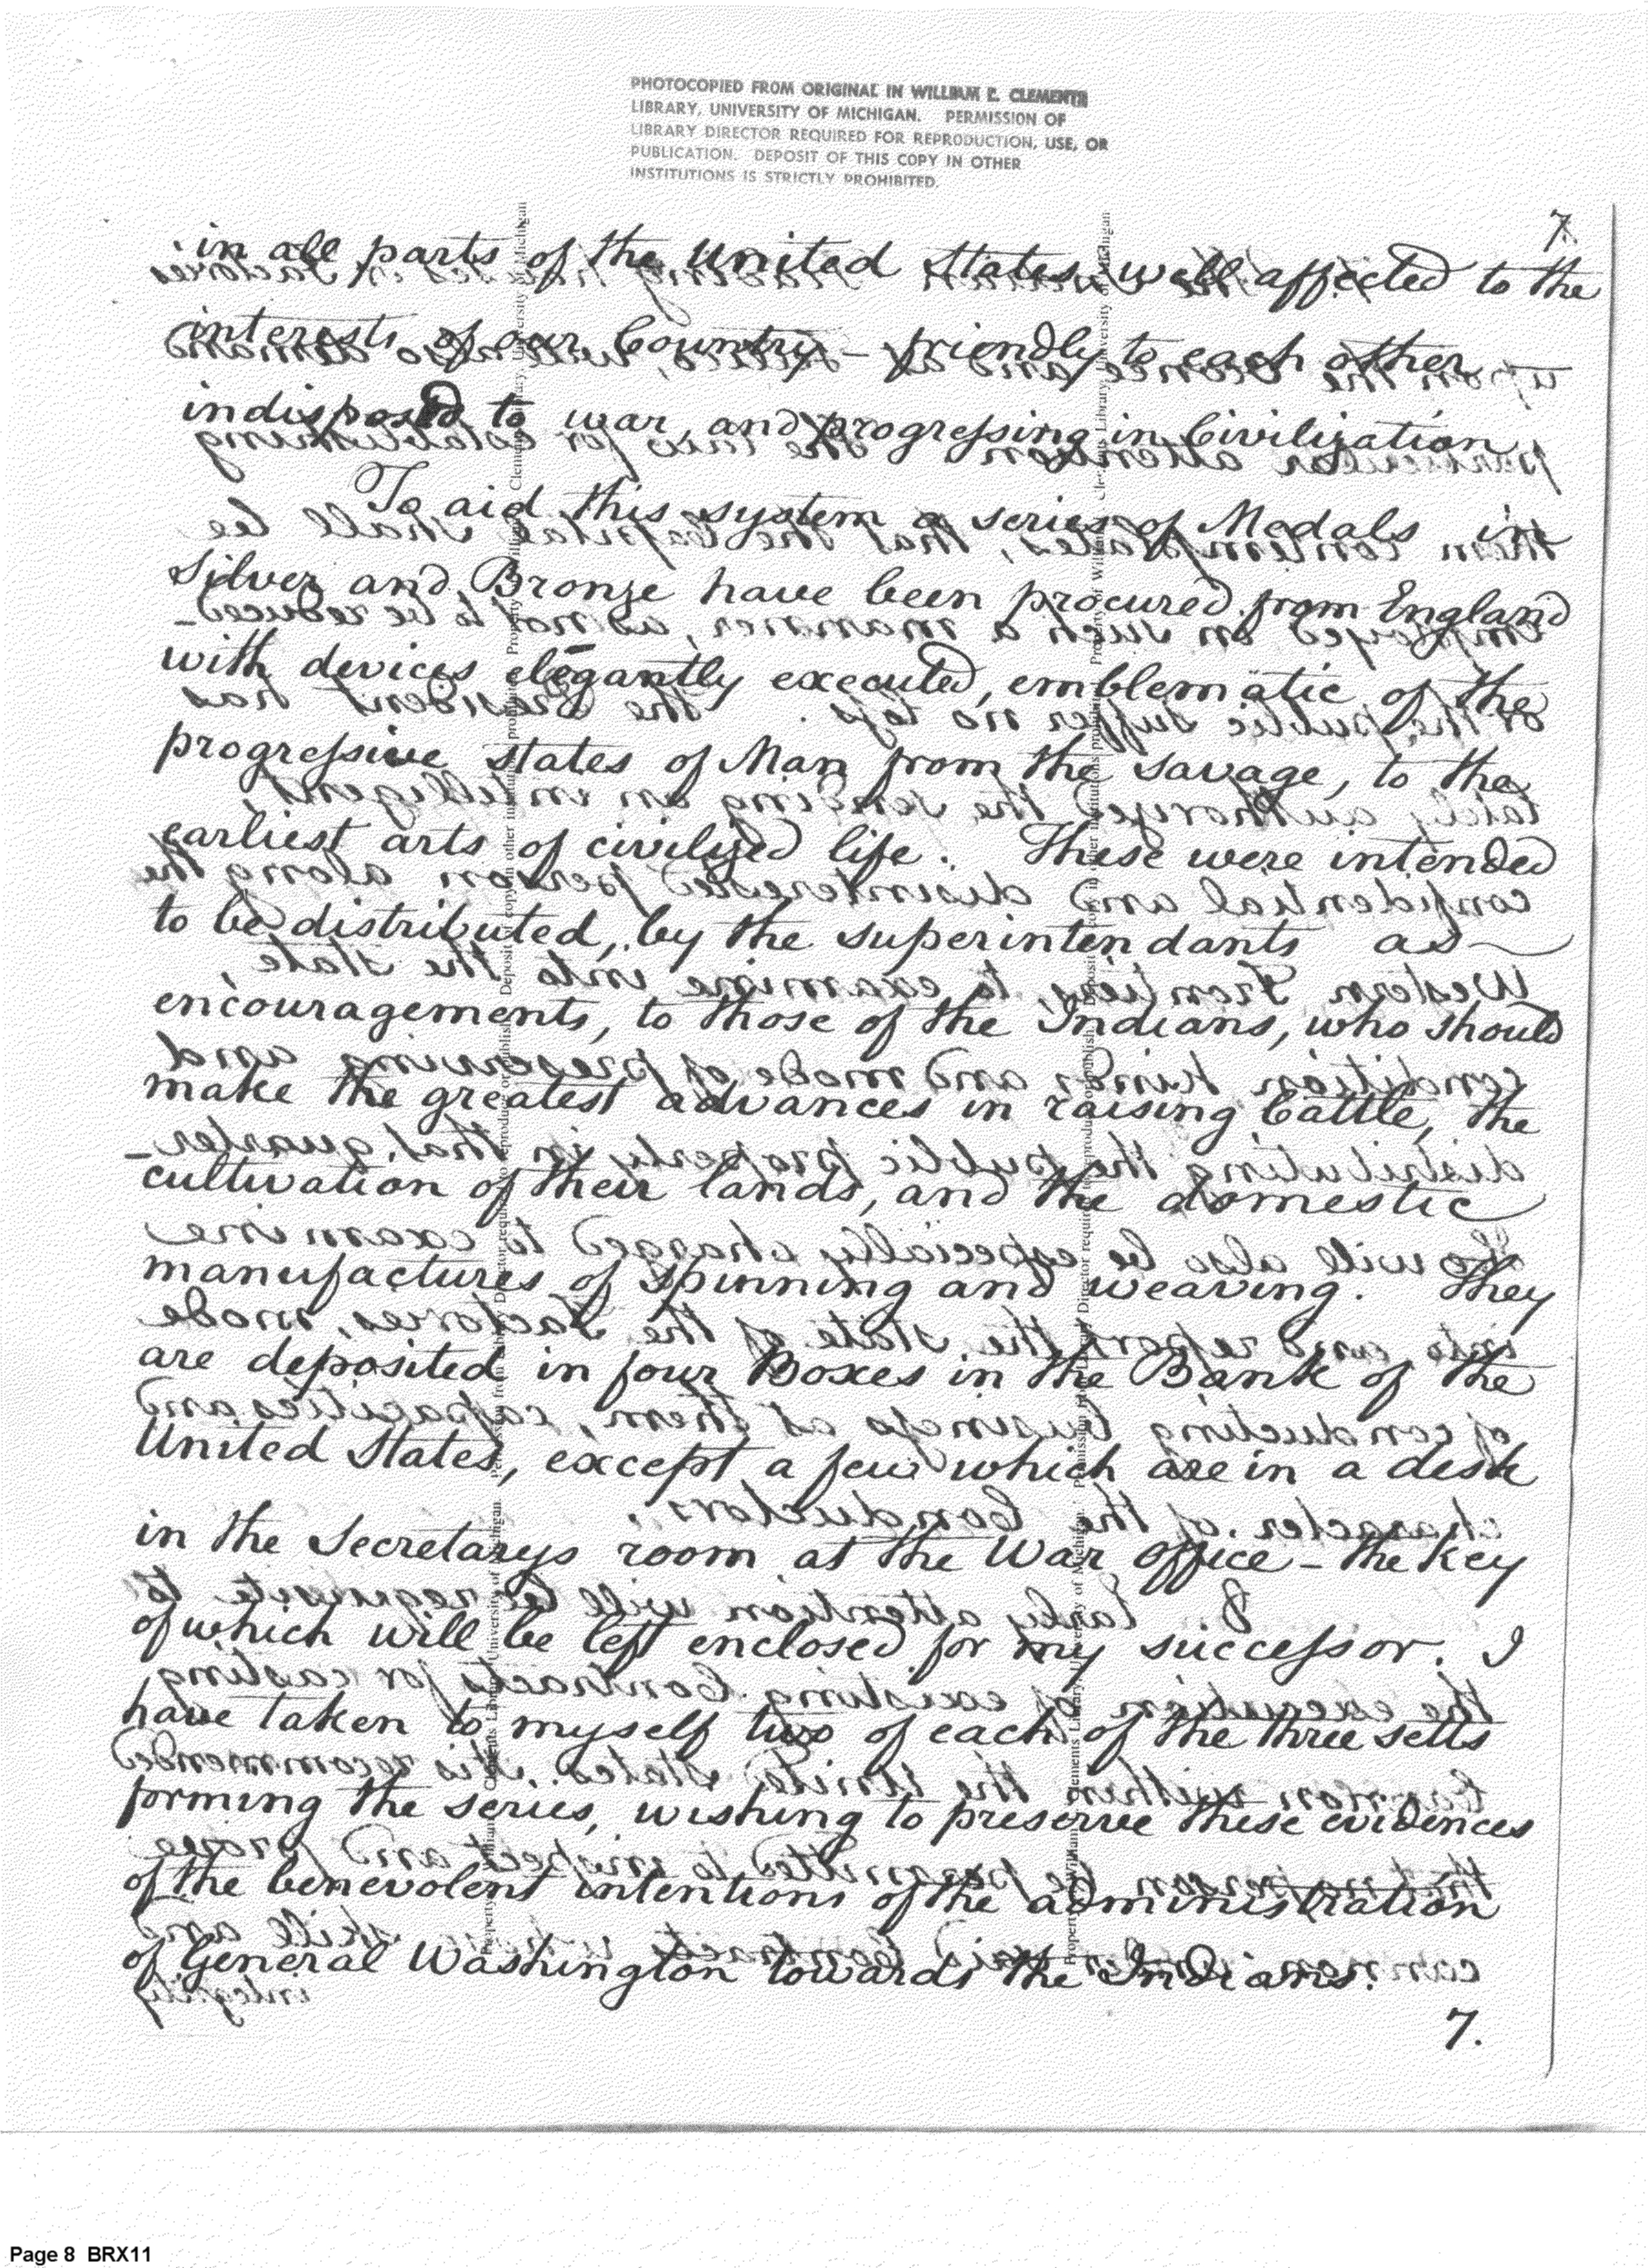 PHOTOCOPIED FROM ORIGINAL IN WILLIAM L. CLEMENTS
LIBRARY, UNIVERSITY OF MICHIGAN. PERMISSION OF
LIBRARY DIRECTOR REQUIRED FOR REPRODUCTION, USE, OR
PUBLICATION. DEPOSIT OF THIS COPY IN OTHER
INSTITUTIONS IS STRICTLY PROHIBITED.
7.
in all parts of the United States well affected to the
interests of our Country – friendly to each other
indisposed to war, and progressing in Civilization
To aid this system a series of Medals in
Silver and Bronze have been procured from England
with devices elegantly executed, emblematic of the
progressive states of Man from the savage, to the
earliest arts of civilized life. These were intended
to be distributed, by the superintendants as
encouragements, to those of the Indians, who should
make the greatest advances in raising Cattle, the
cultivation of their lands, and the domestic
manufactures of spinning and weaving. They
are deposited in four Boxes in the Bank of the
United States, except a few which are in a desk
in the Secretarys room at the War Office – the key
of which will be left enclosed for my successor. I
have taken to myself two of each of the three setts
forming the series, wishing to preserve these evidences
of the benevolent intentions of the administration
of General Washington towards the Indians.
7.
Page 8 BRX11